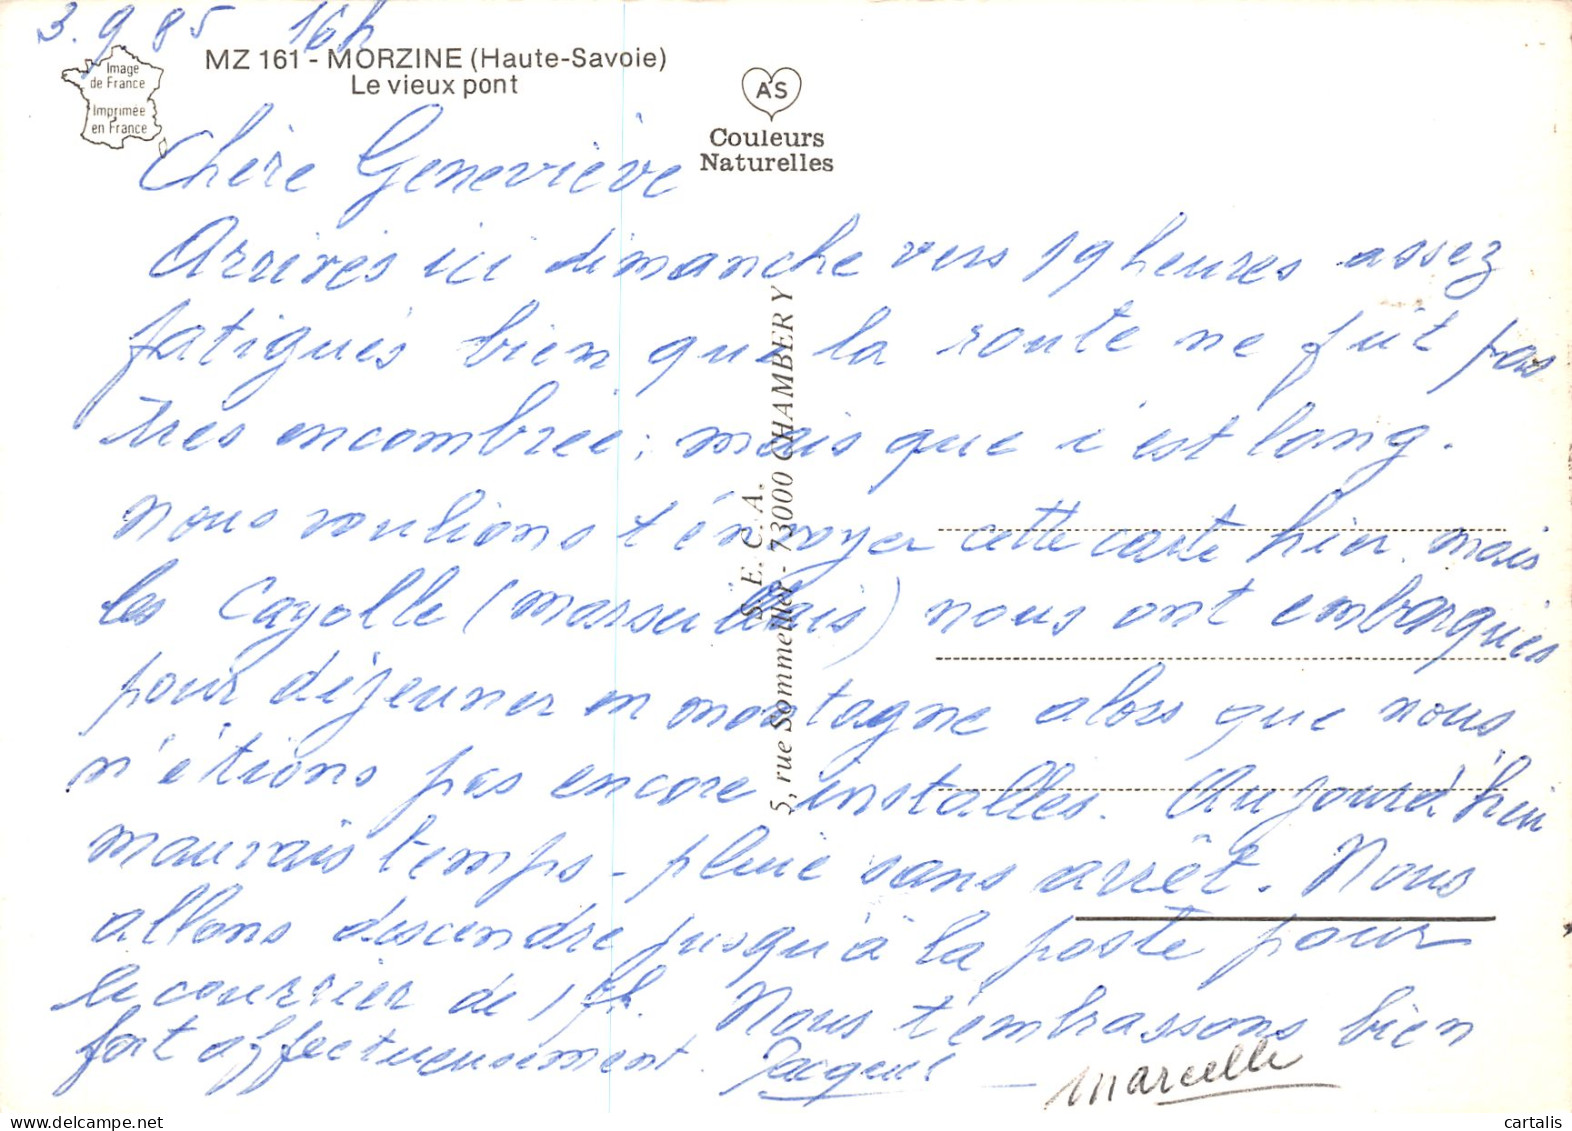 3.9.85 16h
MZ 161 - MORZINE (Haute-Savoie)
Le vieux pont
Image
de France
Imprimée
en France
AS
Couleurs
Naturelles
Chère Geneviève
Arrivés ici dimanche vers 19 heures assez
fatigués bien que la route ne fût pas
très encombrée; mais que c'est long.
Nous voulions t'envoyer cette carte hier mais
les Cayolle (marseillais) nous ont embarqués
pour déjeuner en montagne alors que nous
n'étions pas encore installés. Aujourd'hui
mauvais temps - pluie sans arrêt. Nous
allons descendre jusqu'à la poste pour
le courrier de 17h. Nous t'embrassons bien
fort affectueusement Jacques - Marcelle
S. E. C. A.
5, rue Sommeiller - 73000 CHAMBERY
cartalis
www.delcampe.net